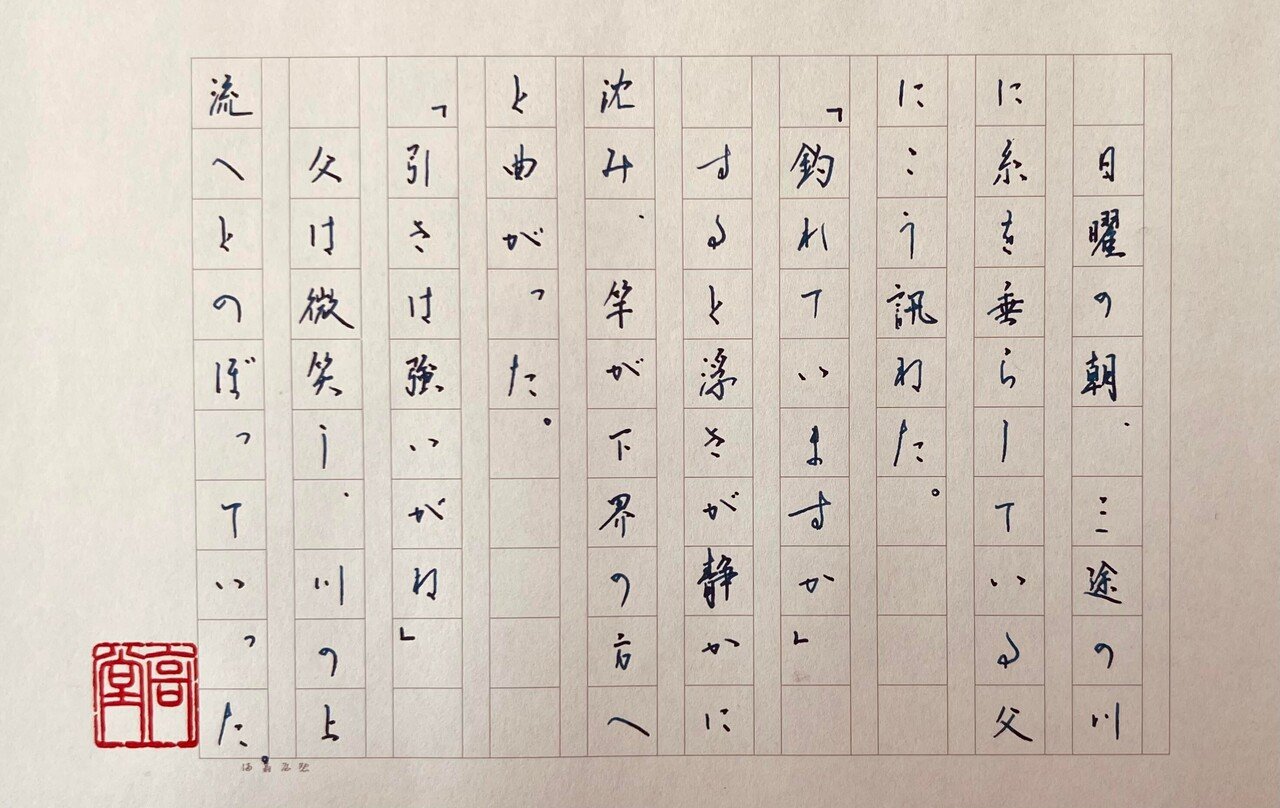 日曜の朝、三途の川
に糸を垂らしている父
にこう訊ねた。
「釣れていますか」
　すると浮きが静かに
沈み、竿が下界の方へ
と曲がった。
「引きは強いがね」
　父は微笑し、川の上
流へとのぼっていった。